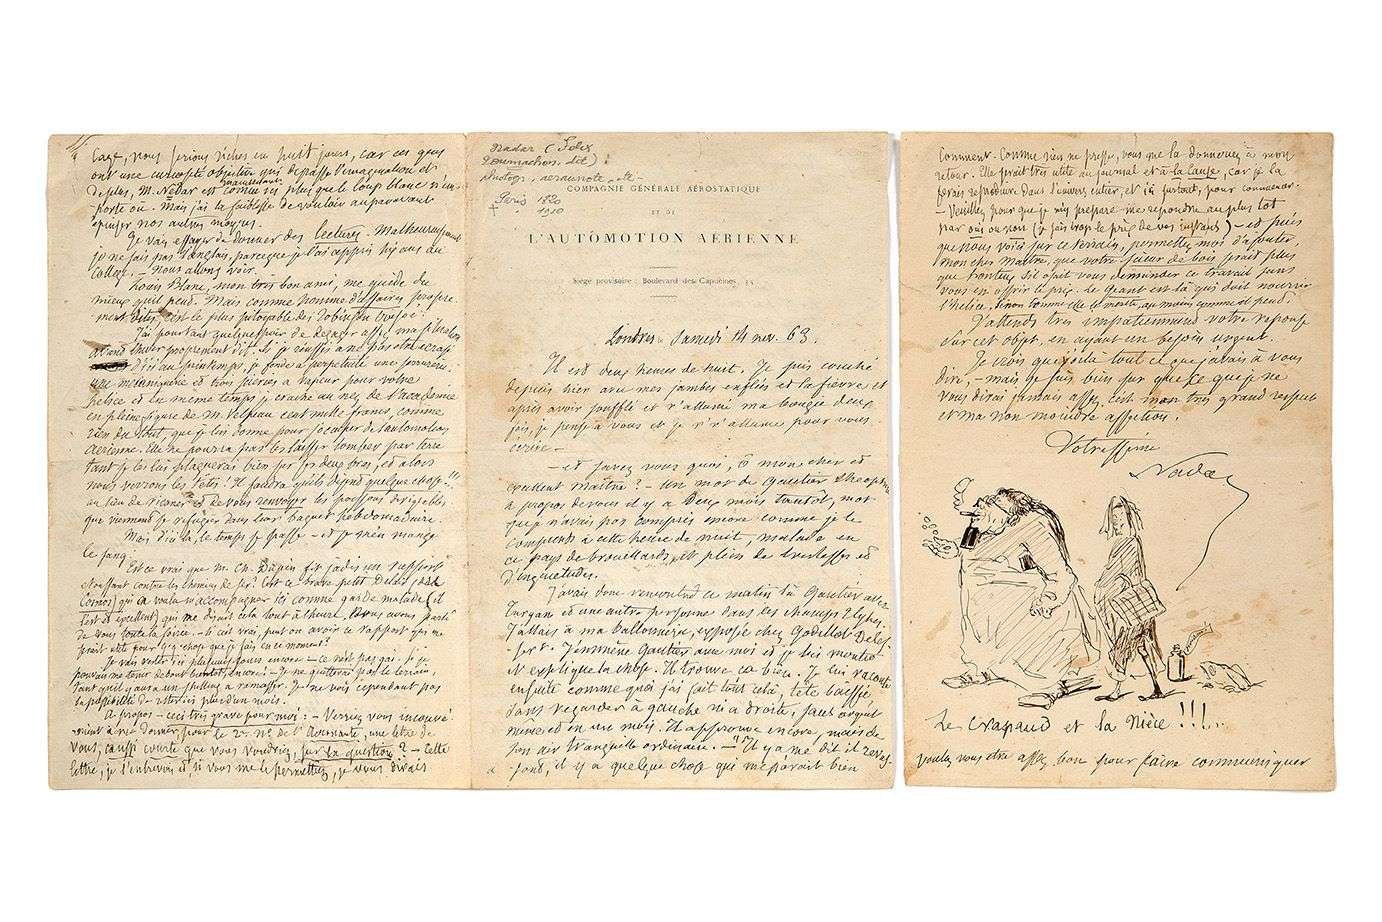 Cage, nous serions riches en huit jours, car ces gens
ont une curiosité objective qui dépasse l'imagination et
de plus, M. Nadar est maintenant connu ici plus que le loup blanc n'im-
porte où. Mais j'ai la faiblesse de vouloir auparavant
épuiser nos autres moyens.
Je vais essayer de donner des lectures. Malheureusement
je ne sais pas l'anglais, parceque je l'ai appris ans au
collège. - Nous allons voir.
Louis Blanc, mon très bon ami, me guide du
mieux qu'il peut. Mais comme homme d'affaires propre-
ment dites, c'est le plus pitoyable des Robinson Crusoé!
J'ai pourtant quelque espoir de
proprement dit. Si je réussis à ne pas être écrasé
d'ici au printemps, je fonde à perpétuité une
une mécanique et trois sucres à vapeur pour votre
hélice et en même temps je crache au nez de l'académie
en pleine figure de M. Velpeau cent mille francs, comme
rien du tout, que je lui donne pour s'occuper de l'automotion
aérienne. Elle ne pourra pas les laisser tomber par terre
tant je les lui plaquerai bien sur ses deux bras, et alors
nous verrons les fêtes! Il faudra qu'ils disent quelque chose!!!
au lieu de ricaner et de vous renvoyer les poissons dirigeables
que viennent se réfugier dans leur baquet hebdomadaire.
Mais d'ici là, le temps se passe - et je m'en mange
le sang.
Est ce vrai que M. Ch. Dupin fit jadis un rapport
étouffant contre les chemins de fer? C'est ce brave petit
Cosmos) qui a voulu m'accompagner ici comme garde malade (il
est excellent) qui me disait cela tout à l'heure. Nous avons parlé
de vous toute la soirée. - Si c'est vrai, peut on avoir ce rapport qui me
serait utile pour qq chose que je fais en ce moment?
Je vais rester ici plusieurs jours encore - ce n'est pas gai. Si je
pouvais me tenir debout bientôt, encore! - Je ne quitterai pas le terrain,
tant qu'il y aura un shilling à ramasser. Je ne vois cependant pas
la possibilité de rester ici plus d'un mois.
A propos - ceci très grave pour moi: - Verriez vous inconvé-
nient à me donner, pour le 2e No. de l'Aéronaute, une lettre de
vous, aussi courte que vous voudriez, sur la question? - Cette
lettre, je l'entrevois et, si vous me le permettez, je vous dirais
Nadar (Félix
Tournachon, dit)
photogr, aéronaute, etc
Paris 1820
† " 1910
COMPAGNIE GÉNÉRALE AÉROSTATIQUE
ET DE
L'AUTOMOTION AÉRIENNE
Siège provisoire : Boulevard des Capucines, 35
Londres, Samedi 14 nov. 63.
Il est deux heures de nuit. Je suis couché
depuis hier avec mes jambes enflées et la fièvre et
après avoir soufflé et r'allumé ma bougie deux
fois, je pense à vous et je r'allume pour vous
écrire -
- et savez vous quoi, ô mon cher et
excellent maître? - Un mot de Gautier Théophile
à propos de vous il y a deux mois tantôt, mot
que je n'avais pas compris encore comme je le
comprends à cette heure de nuit, malade en
ce pays de brouillards, et plein de tristesses et
d'inquiétudes.
J'avais donc rencontré ce matin là Gautier avec
Turgan et une autre personne dans les champs Elysées.
J'allais à ma ballonnerie, exposée chez Godillot
J'emmène Gautier avec moi et je lui montre
et explique la chose. Il trouve ça bien. Je lui raconte
ensuite comme quoi j'ai fait tout cela, tête baissée
sans regarder à gauche ni à droite, sans argent
mien et en un mois. Il approuve encore, mais de
son air tranquille ordinaire. - "Il y a me dit il au
fond, il y a quelque chose qui me paraît bien
comment. Comme rien ne presse, vous me la donneriez à mon
retour. Elle serait très utile au journal et à la cause, car je la
ferais reproduire dans l'univers entier, et ici surtout, pour commencer.
- Veuillez pour que je m'y prépare me répondre au plus tôt
par oui ou non (je sais trop le prix de vos instants) - et puis
que nous voici sur ce terrain, permettez moi d'ajouter,
mon cher maître, que votre serait plus
que honteux s'il osait vous demander ce travail sans
vous en offrir le prix. Le Géant est là qui doit nourrir
l'hélice, sinon comme elle le mérite, au moins comme il peut.
J'attends très impatiemment votre réponse
sur cet objet, en ayant un besoin urgent.
Je crois que voilà tout ce que j'avais à vous
dire, - mais je suis bien sûr que ce que je ne
vous dirai jamais assez, c'est mon très grand respect
et ma non moindre affection.
Votrissime
Nadar
Le crapaud et la Nièce!!!...
voulez vous être assez bon pour faire communiquer